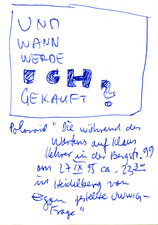 UND
WANN
WERDE
ICH
GEKAUFT?
Polaroid "Die während des
Wartens auf Klaus
in der Bergstr. 99
am 27 IX 95 ca. 22 30
in Heidelberg von
Egon gestellte
Frage"